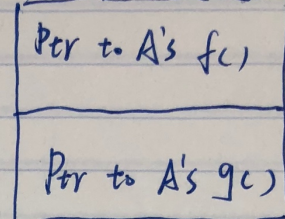 Ptr to A's f()
Ptr to A's g()